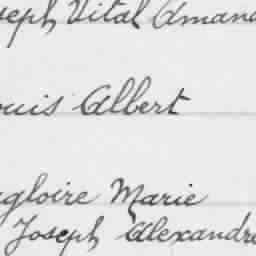 seph Vital Amand
ouis Albert
gloire Marie
Joseph Alexandre